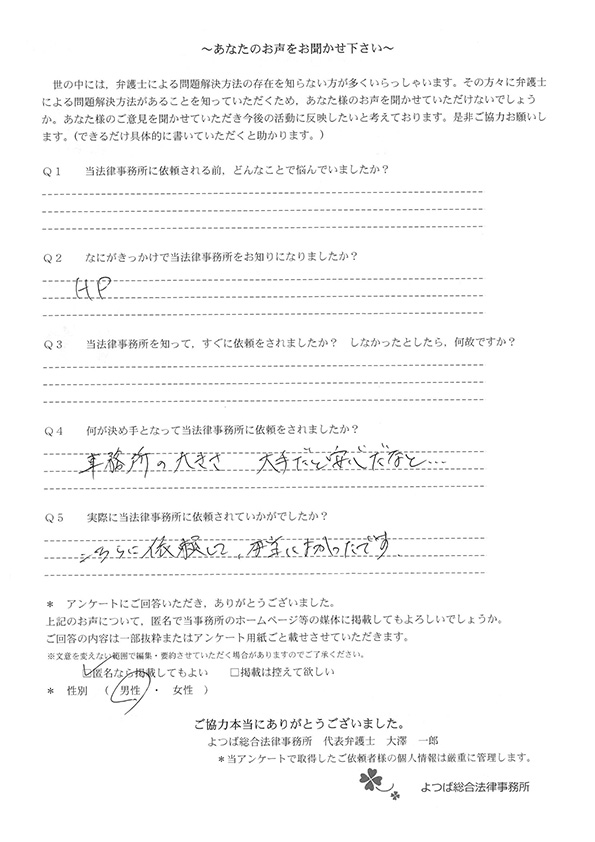 ～あなたのお声をお聞かせ下さい～
世の中には，弁護士による問題解決方法の存在を知らない方が多くいらっしゃいます。その方々に弁護士
による問題解決方法があることを知っていただくため，あなた様のお声を聞かせていただけないでしょう
か。あなた様のご意見を聞かせていただき今後の活動に反映したいと考えております。是非ご協力お願いしま
す。（できるだけ具体的に書いていただくと助かります。）
Ｑ１　当法律事務所に依頼される前，どんなことで悩んでいましたか？
Ｑ２　なにがきっかけで当法律事務所をお知りになりましたか？
HP
Ｑ３　当法律事務所を知って，すぐに依頼をされましたか？　しなかったとしたら，何故ですか？
Ｑ４　何が決め手となって当法律事務所に依頼をされましたか？
事務所の大きさ　大手だと安心だなと…
Ｑ５　実際に当法律事務所に依頼されていかがでしたか？
こちらに依頼して、本当によかったです。
＊　アンケートにご回答いただき，ありがとうございました。
上記のお声について，匿名で当事務所のホームページ等の媒体に掲載してもよろしいでしょうか。
ご回答の内容は一部抜粋またはアンケート用紙ごと載せさせていただきます。
※文意を変えない範囲で編集・要約させていただく場合がありますのでご了承ください。
☑匿名なら掲載してもよい　□掲載は控えて欲しい
＊　性別　（　男性　・　女性　）
ご協力本当にありがとうございました。
よつば総合法律事務所　代表弁護士　大澤　一郎
＊当アンケートで取得したご依頼者様の個人情報は厳重に管理します。
よつば総合法律事務所